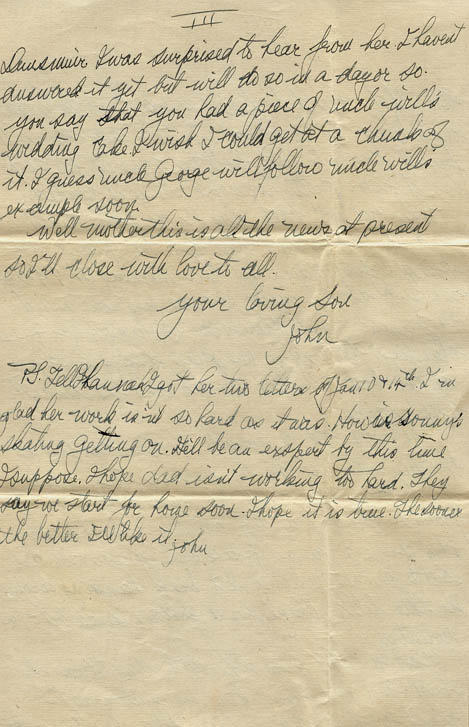 III
Dunsmuir I was surprised to hear from her I havent
answered it yet but will do so in a day or so.
you say that you had a piece of uncle will's
wedding cake. I wish I could get at a chunk of
it. I guess uncle George will follow uncle will's
example soon.
Well mother this is all the news at present
so I'll close with love to all.
your loving son
John
P.S. Tell Hannah I got her two letters of Jan 10 & 14th. I'm
glad her work isn't so hard as it was. How is sonny's
skating getting on. He'll be an exspert by this time
I suppose. I hope dad isn't working too hard. They
say we start for home soon. I hope it is true. The sooner
the better I'll like it. John